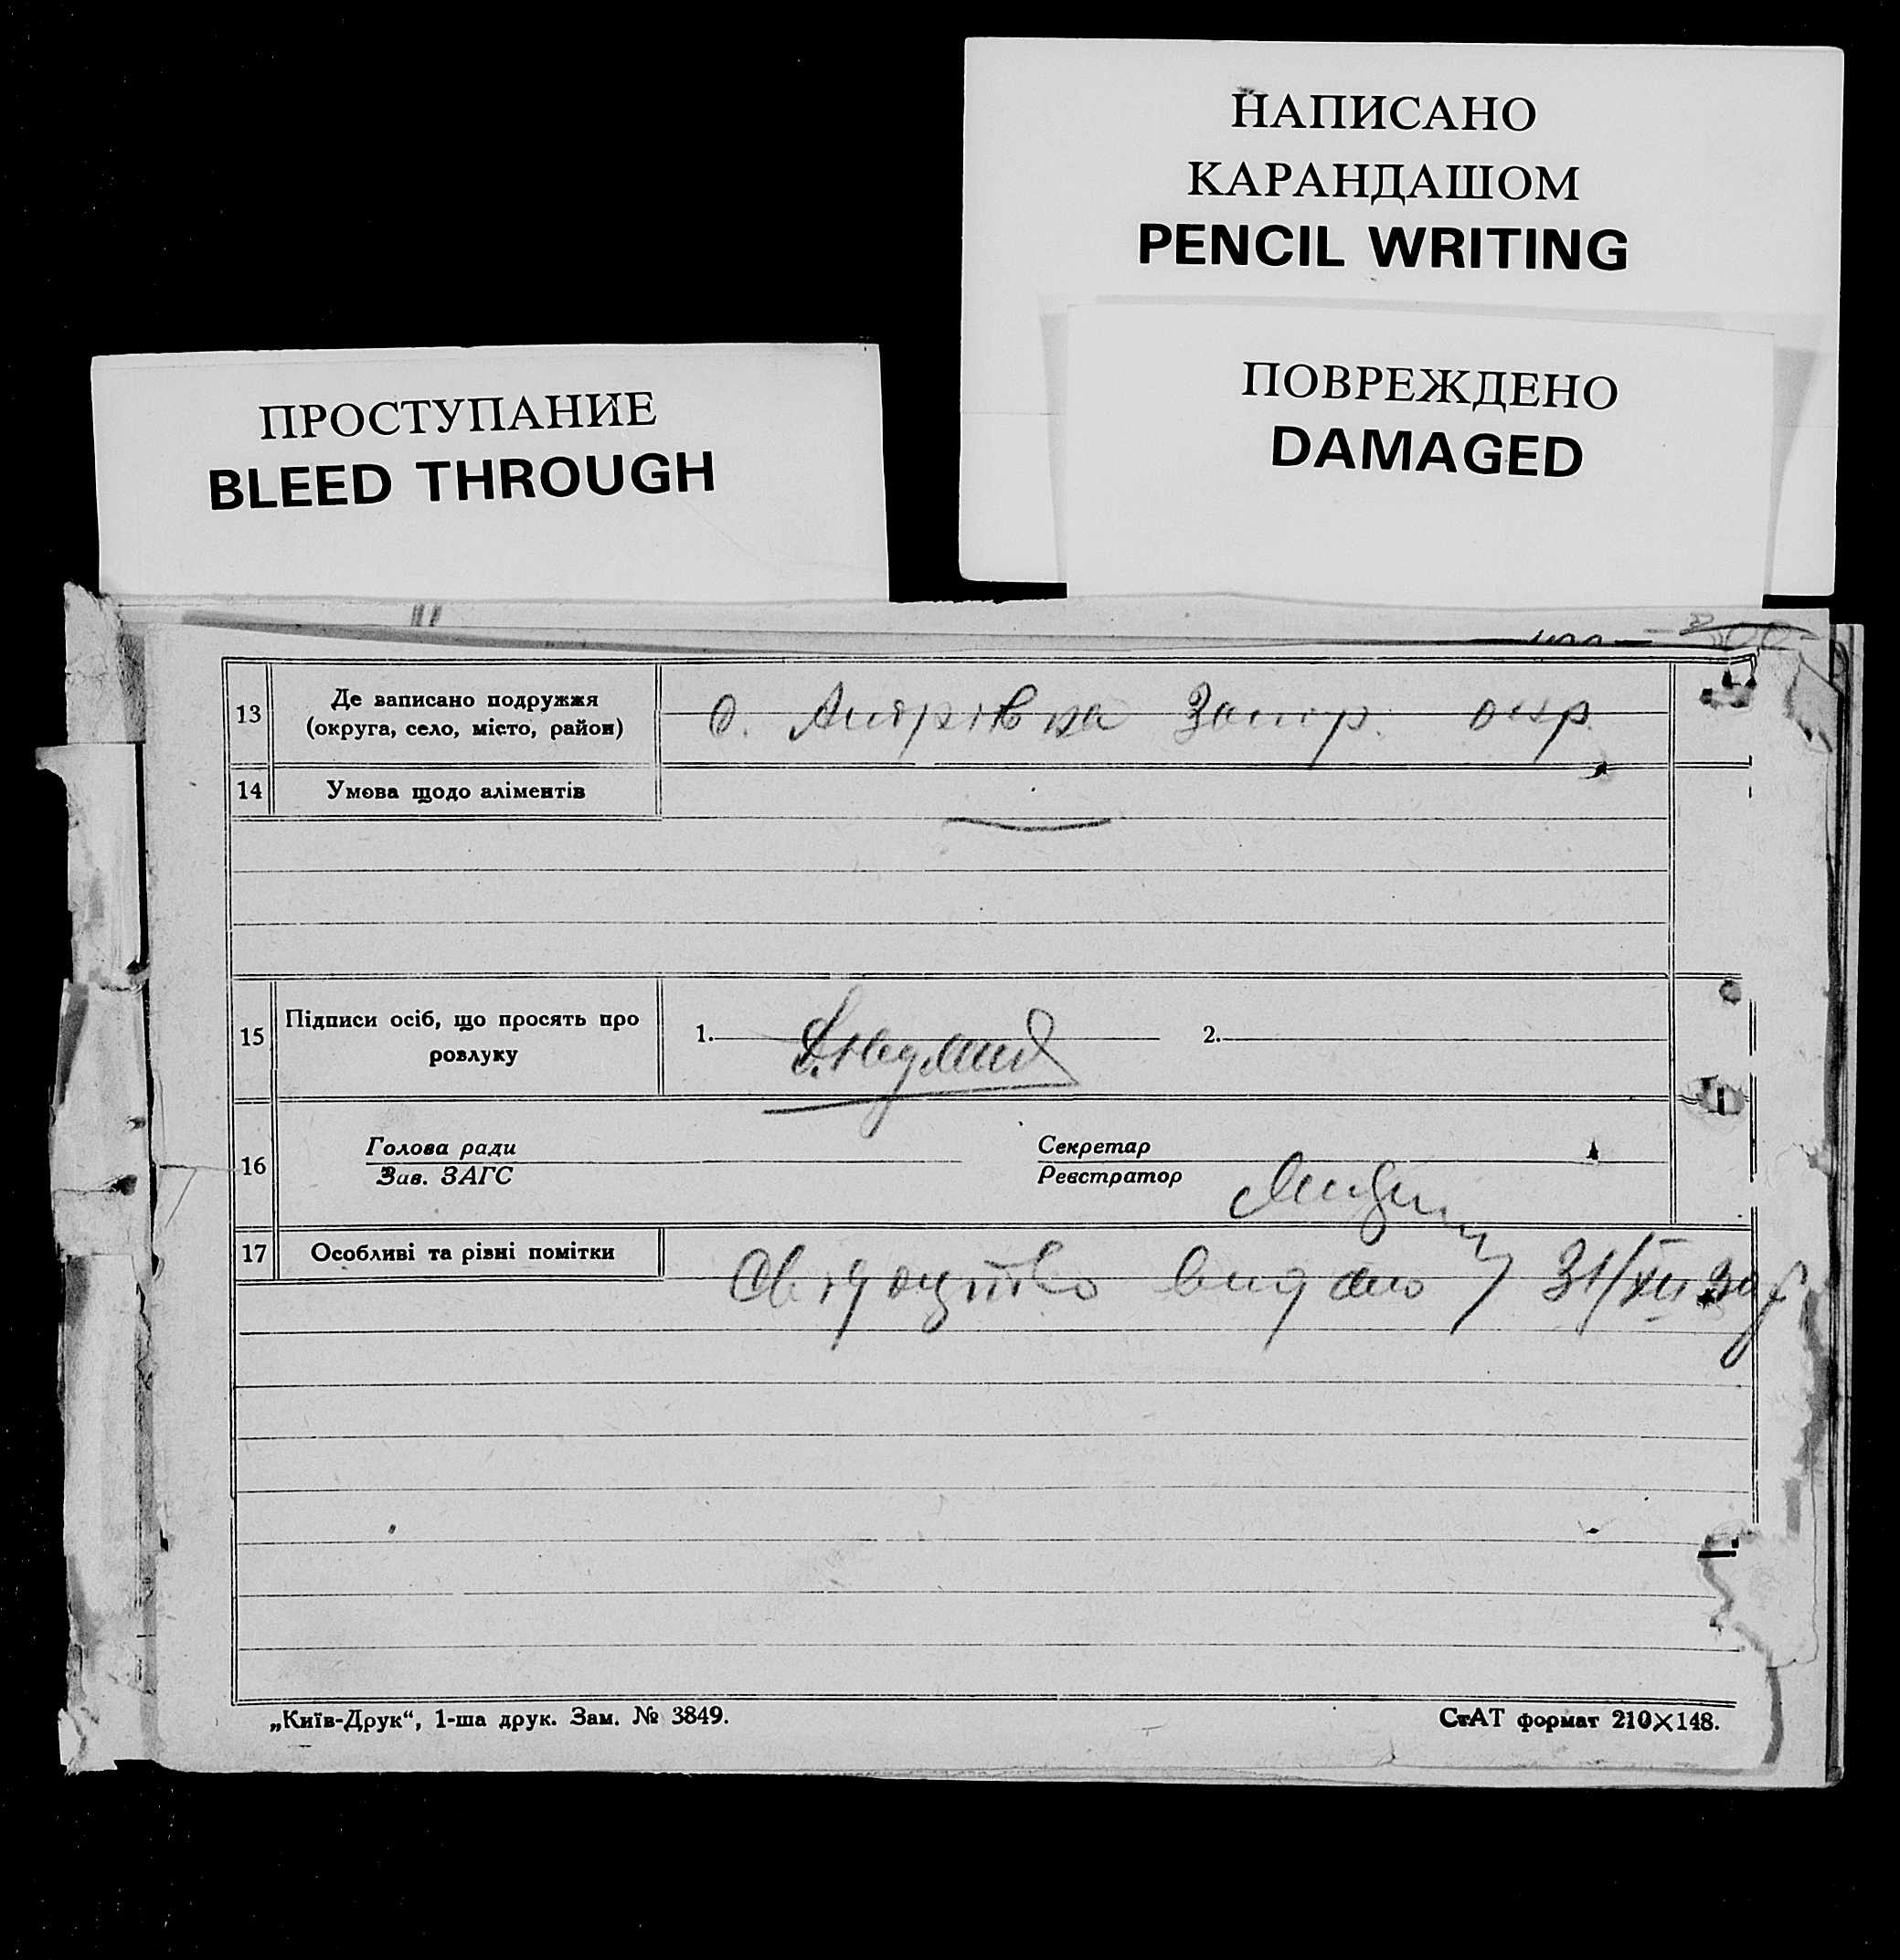 НАПИСАНО
КАРАНДАШОМ
PENCIL WRITING
ПОВРЕЖДЕНО
DAMAGED
ПРОСТУПАНИЕ
BLEED THROUGH
13 Де записано подружжя
(округа, село, місто, район)
Запор. окр.
14 Умова щодо аліментів
15 Підписи осіб, що просять про
розлуку
1. 2.
16 Голова ради
Зав. ЗАГС
Секретар
Реєстратор
17 Особливі та різні помітки
Свідоцтво видано 31/XII 30 р
„Київ-Друк“, 1-ша друк. Зам. № 3849.
СтАТ формат 210×148.